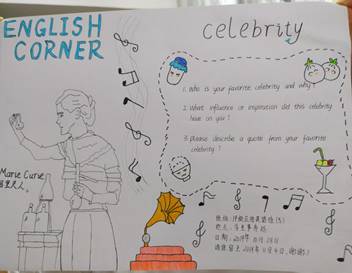 ENGLISH
CORNER
celebrity
1. Who is your favorite celebrity and why?
2. What influence or inspiration did this celebrity
have on you?
3. Please describe a quote from your favorite
celebrity?
Marie Curie
居里夫人。
地点:学生事务处
日期:2019年